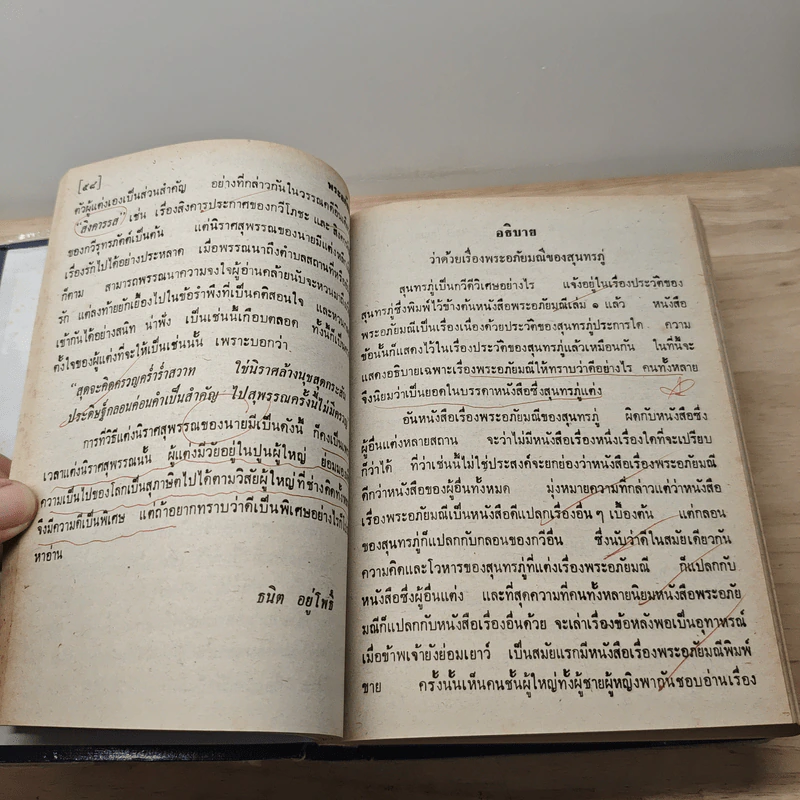 [๕๔]
ตัวผู้แต่งเองเป็นส่วนสำคัญ อย่างที่กล่าวกันในวรรณคดี
"สิงคารรส" เช่น เรื่องสิงคารประกาศของกวีโภชะ และ
ของกวีรุทรภัคต์เป็นต้น แต่นิราศสุพรรณของนายมี
เรื่องรักไปได้อย่างประหลาด เมื่อพรรณนาถึงตำบลสถานที่
ก็ตาม สามารถพรรณนาความจงใจผู้อ่านคล้ายนับจะหวน
รัก แต่ลงท้ายยักเยื้องไปในข้อรำพึงที่เป็นคติสอนใจ และ
เข้ากันได้อย่างสนิท น่าฟัง เป็นเช่นนี้เกือบตลอด ทั้งนี้ก็เป็น
ตั้งใจของผู้แต่งที่จะให้เป็นเช่นนั้น เพราะบอกว่า
"สุดจะคิดครวญคร่ำร่ำสวาท ใช้นิราศล้างนุชสุดกระสัน
ประดิษฐ์กลอนค่อนคำเป็นสำคัญ ไปสุพรรณครั้งนี้ไม่มี
การที่วิธีแต่งนิราศสุพรรณของนายมีเป็นดังนี้ ก็คงเป็น
เวลาแต่งนิราศสุพรรณนั้น ผู้แต่งมีวัยอยู่ในปูนผู้ใหญ่ ย่อม
ความเป็นไปของโลกเป็นสุภาษิตไปได้ตามวิสัยผู้ใหญ่ ที่ช่างคิด
จึงมีความดีเป็นพิเศษ แต่ถ้าอยากทราบว่าดีเป็นพิเศษอย่างไร
หาอ่าน
ธนิต อยู่โพธิ์
อธิบาย
ว่าด้วยเรื่องพระอภัยมณีของสุนทรภู่
สุนทรภู่เป็นกวีดีวิเศษอย่างไร แจ้งอยู่ในเรื่องประวัติของ
สุนทรภู่ซึ่งพิมพ์ไว้ข้างต้นหนังสือพระอภัยมณีเล่ม ๑ แล้ว หนังสือ
พระอภัยมณีเป็นเรื่องเนื่องด้วยประวัติของสุนทรภู่ประการใด ความ
ข้อนั้นก็แสดงไว้ในเรื่องประวัติของสุนทรภู่แล้วเหมือนกัน ในที่นี้จะ
แสดงอธิบายเฉพาะเรื่องพระอภัยมณีให้ทราบว่าดีอย่างไร คนทั้งหลาย
จึงนิยมว่าเป็นยอดในบรรดาหนังสือซึ่งสุนทรภู่แต่ง
อันหนังสือเรื่องพระอภัยมณีของสุนทรภู่ ผิดกับหนังสือซึ่ง
ผู้อื่นแต่งหลายสถาน จะว่าไม่มีหนังสือเรื่องหนึ่งเรื่องใดที่จะเปรียบ
ก็ว่าได้ ที่ว่าเช่นนี้ไม่ใช่ประสงค์จะยกย่องว่าหนังสือเรื่องพระอภัยมณี
ดีกว่าหนังสือของผู้อื่นทั้งหมด มุ่งหมายความที่กล่าวแต่ว่าหนังสือ
เรื่องพระอภัยมณีเป็นหนังสือดีแปลกเรื่องอื่น ๆ เบื้องต้น แต่กลอน
ของสุนทรภู่ก็แปลกกับกลอนของกวีอื่น ซึ่งนับว่าดีในสมัยเดียวกัน
ความคิดและโวหารของสุนทรภู่ที่แต่งเรื่องพระอภัยมณี ก็แปลกกับ
หนังสือซึ่งผู้อื่นแต่ง และที่สุดความที่คนทั้งหลายนิยมหนังสือพระอภัย
มณีก็แปลกกับหนังสือเรื่องอื่นด้วย จะเล่าเรื่องข้อหลังพอเป็นอุทาหรณ์
เมื่อข้าพเจ้ายังย่อมเยาว์ เป็นสมัยแรกมีหนังสือเรื่องพระอภัยมณีพิมพ์
ขาย ครั้งนั้นเห็นคนชั้นผู้ใหญ่ทั้งผู้ชายผู้หญิงพากันชอบอ่านเรื่อง